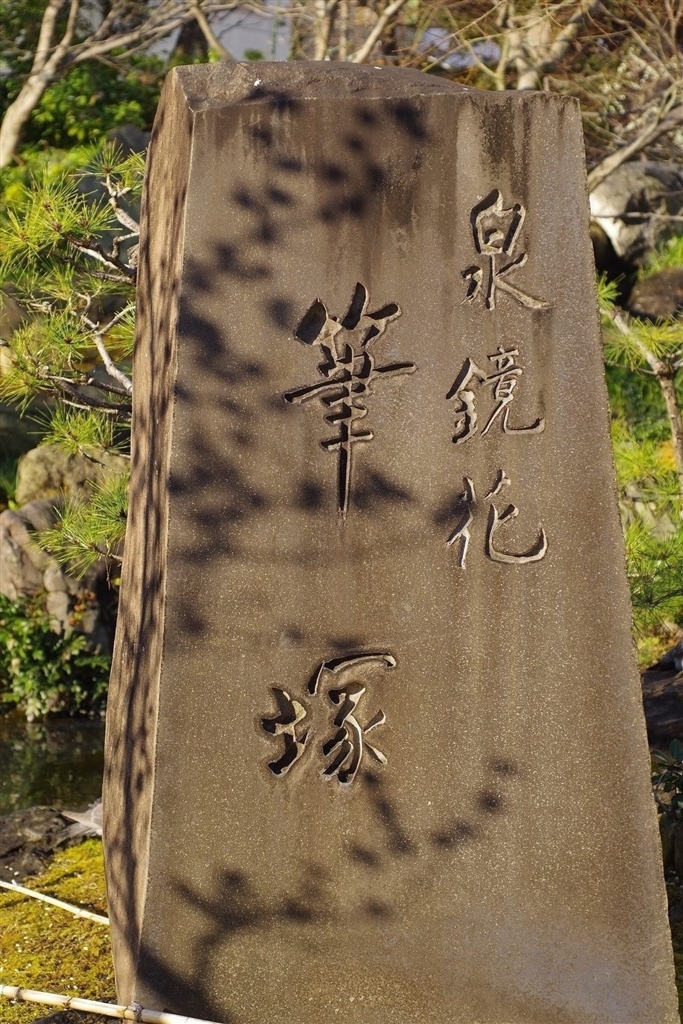 泉鏡花
筆塚